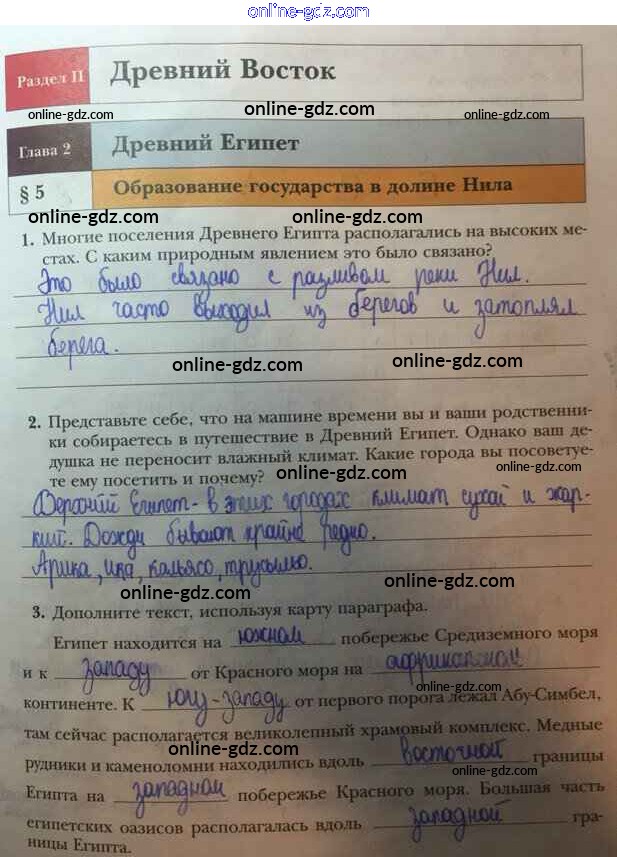 online-gdz.com
Раздел II Древний Восток
online-gdz.com online-gdz.com
Глава 2 Древний Египет
§ 5 Образование государства в долине Нила
online-gdz.com online-gdz.com
1. Многие поселения Древнего Египта располагались на высоких ме-
стах. С каким природным явлением это было связано?
Это было связано с разливом реки Нил.
Нил часто выходил из берегов и затоплял
берега.
online-gdz.com online-gdz.com
2. Представьте себе, что на машине времени вы и ваши родственни-
ки собираетесь в путешествие в Древний Египет. Однако ваш де-
душка не переносит влажный климат. Какие города вы посоветуе-
те ему посетить и почему?
online-gdz.com online-gdz.com
Верхний Египет - в этих городах климат сухой и жар-
кий. Дожди бывают крайне редко.
online-gdz.com
online-gdz.com
3. Дополните текст, используя карту параграфа.
Египет находится на южном побережье Средиземного моря
и к западу от Красного моря на
online-gdz.com
континенте. К югу-западу от первого порога лежал Абу-Симбел,
там сейчас располагается великолепный храмовый комплекс. Медные
online-gdz.com
рудники и каменоломни находились вдоль восточной границы
online-gdz.com
Египта на западном побережье Красного моря. Большая часть
египетских оазисов располагалась вдоль западной гра-
ницы Египта.
online-gdz.com